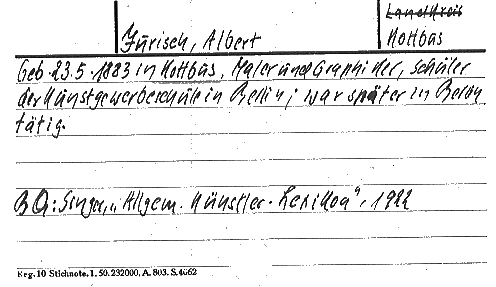 Landkreis
Jürisch, Albert Kottbus
Geb. 23.5.1883 in Kottbus, Maler und Graphiker, Schüler
der Kunstgewerbeschule in Berlin; war später in Berlin
tätig.
BQ: Singer, „Allgem. Künstler-Lexikon", 1922
Reg. 10 Stichnote. 1. 50. 232000. A. 803. S. 4662